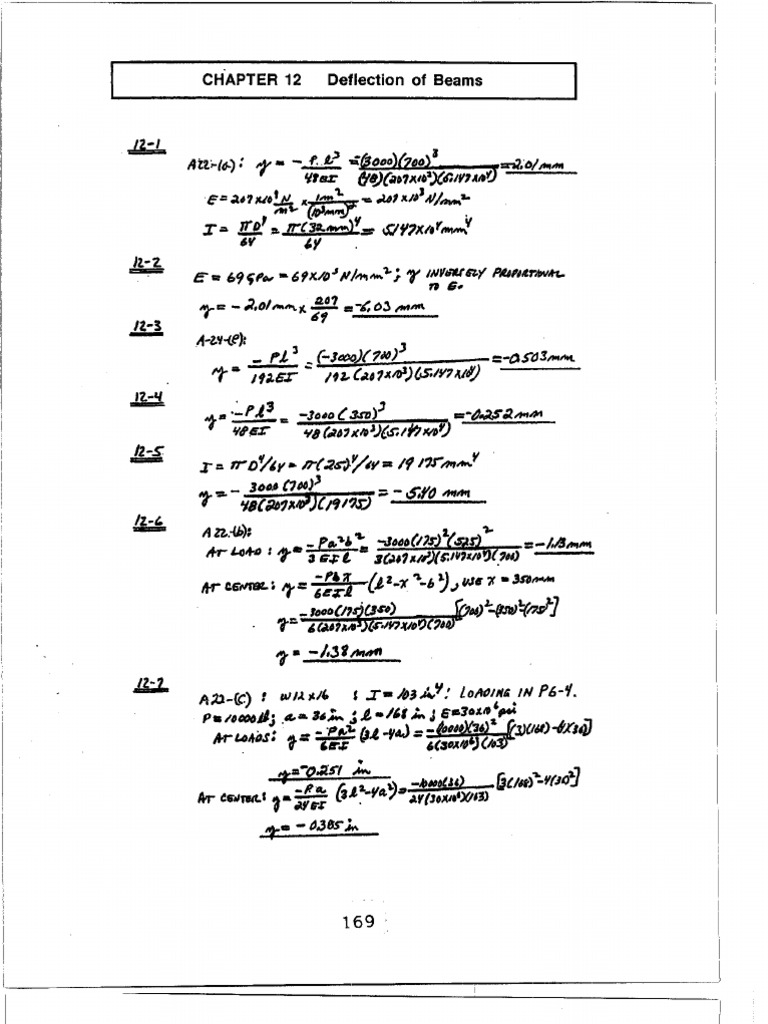 CHAPTER 12 Deflection of Beams
12-1
A22-(a): y = -P.l³/48EI = -(3000)(700)³/(48)(207x10³)(5.147x10⁴) = -2.01 mm
E = 207x10⁹ N/m² x 1m²/(10³mm)² = 207x10³ N/mm²
I = πD⁴/64 = π(32mm)⁴/64 = 5.147x10⁴ mm⁴
12-2
E = 69 GPa = 69x10³ N/mm²; y INVERSELY PROPORTIONAL
TO E.
y = -2.01 mm x 207/69 = -6.03 mm
12-3
A-24-(e):
y = -Pl³/192EI = (-3000)(700)³/192(207x10³)(5.147x10⁴) = -0.503 mm
12-4
y = -Pl³/48EI = -3000(350)³/48(207x10³)(5.147x10⁴) = -0.252 mm
12-5
I = πD⁴/64 = π(25)⁴/64 = 19 175 mm⁴
y = -3000(700)³/48(207x10³)(19175) = -5.40 mm
12-6
A22-(b):
AT LOAD: y = -Pa²b²/3EIl = -3000(175)²(525)²/3(207x10³)(5.147x10⁴)(700) = -1.13 mm
AT CENTER: y = -Pbx/6EIl (l²-x²-b²), USE x = 350mm
y = -3000(175)(350)/6(207x10³)(5.147x10⁴)(700) [(700)²-(350)²-(175)²]
y = -1.38 mm
12-7
A22-(c): W12x16 : I = 103 in⁴: LOADING IN P6-4.
P = 10000 lb; a = 36 in; l = 168 in; E = 30x10⁶ psi
AT LOADS: y = -Pa²/6EI (3l-4a) = -(10000)(36)²/6(30x10⁶)(103) [(3)(168)-4(36)]
y = -0.251 in
AT CENTER: y = -Pa/24EI (3l²-4a²) = -10000(36)/24(30x10⁶)(103) [3(168)²-4(36)²]
y = -0.385 in
169